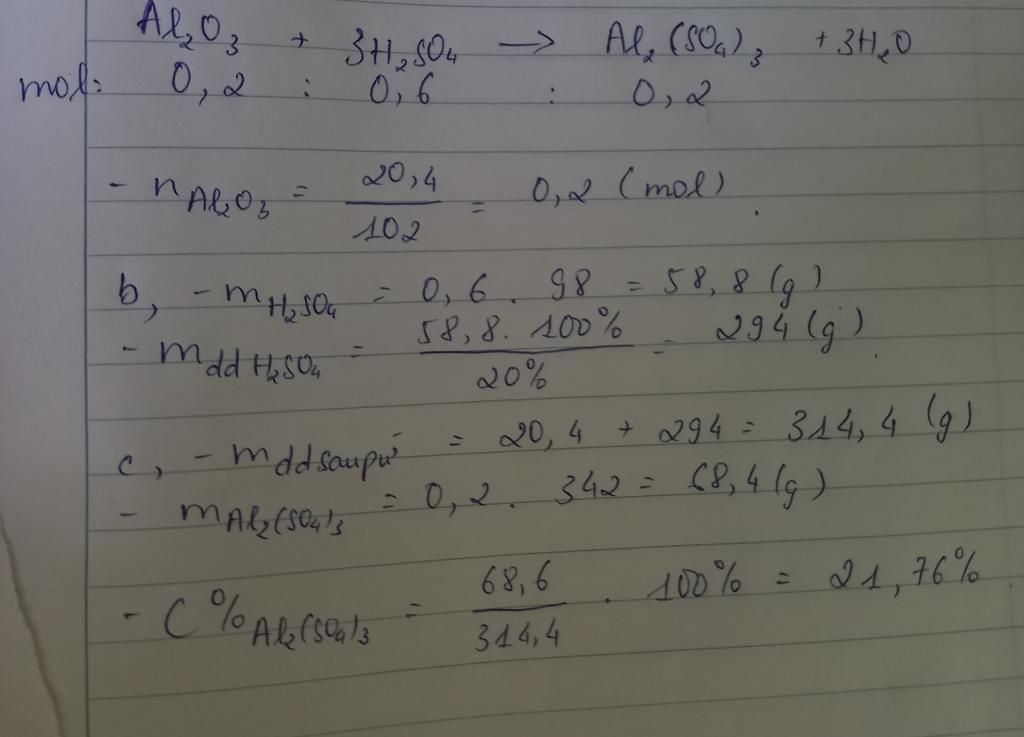 Al₂O₃ + 3H₂SO₄ → Al₂(SO₄)₃ + 3H₂O
mol: 0,2 : 0,6 : 0,2
- nAl₂O₃ = 20,4/102 = 0,2 (mol).
b, - mH₂SO₄ = 0,6 . 98 = 58,8 (g)
- mdd H₂SO₄ = 58,8 . 100%/20% = 294 (g).
c, - mdd saupứ = 20,4 + 294 = 314,4 (g)
- mAl₂(SO₄)₃ = 0,2 . 342 = 68,4 (g)
- C%Al₂(SO₄)₃ = 68,6/314,4 . 100% = 21,76%